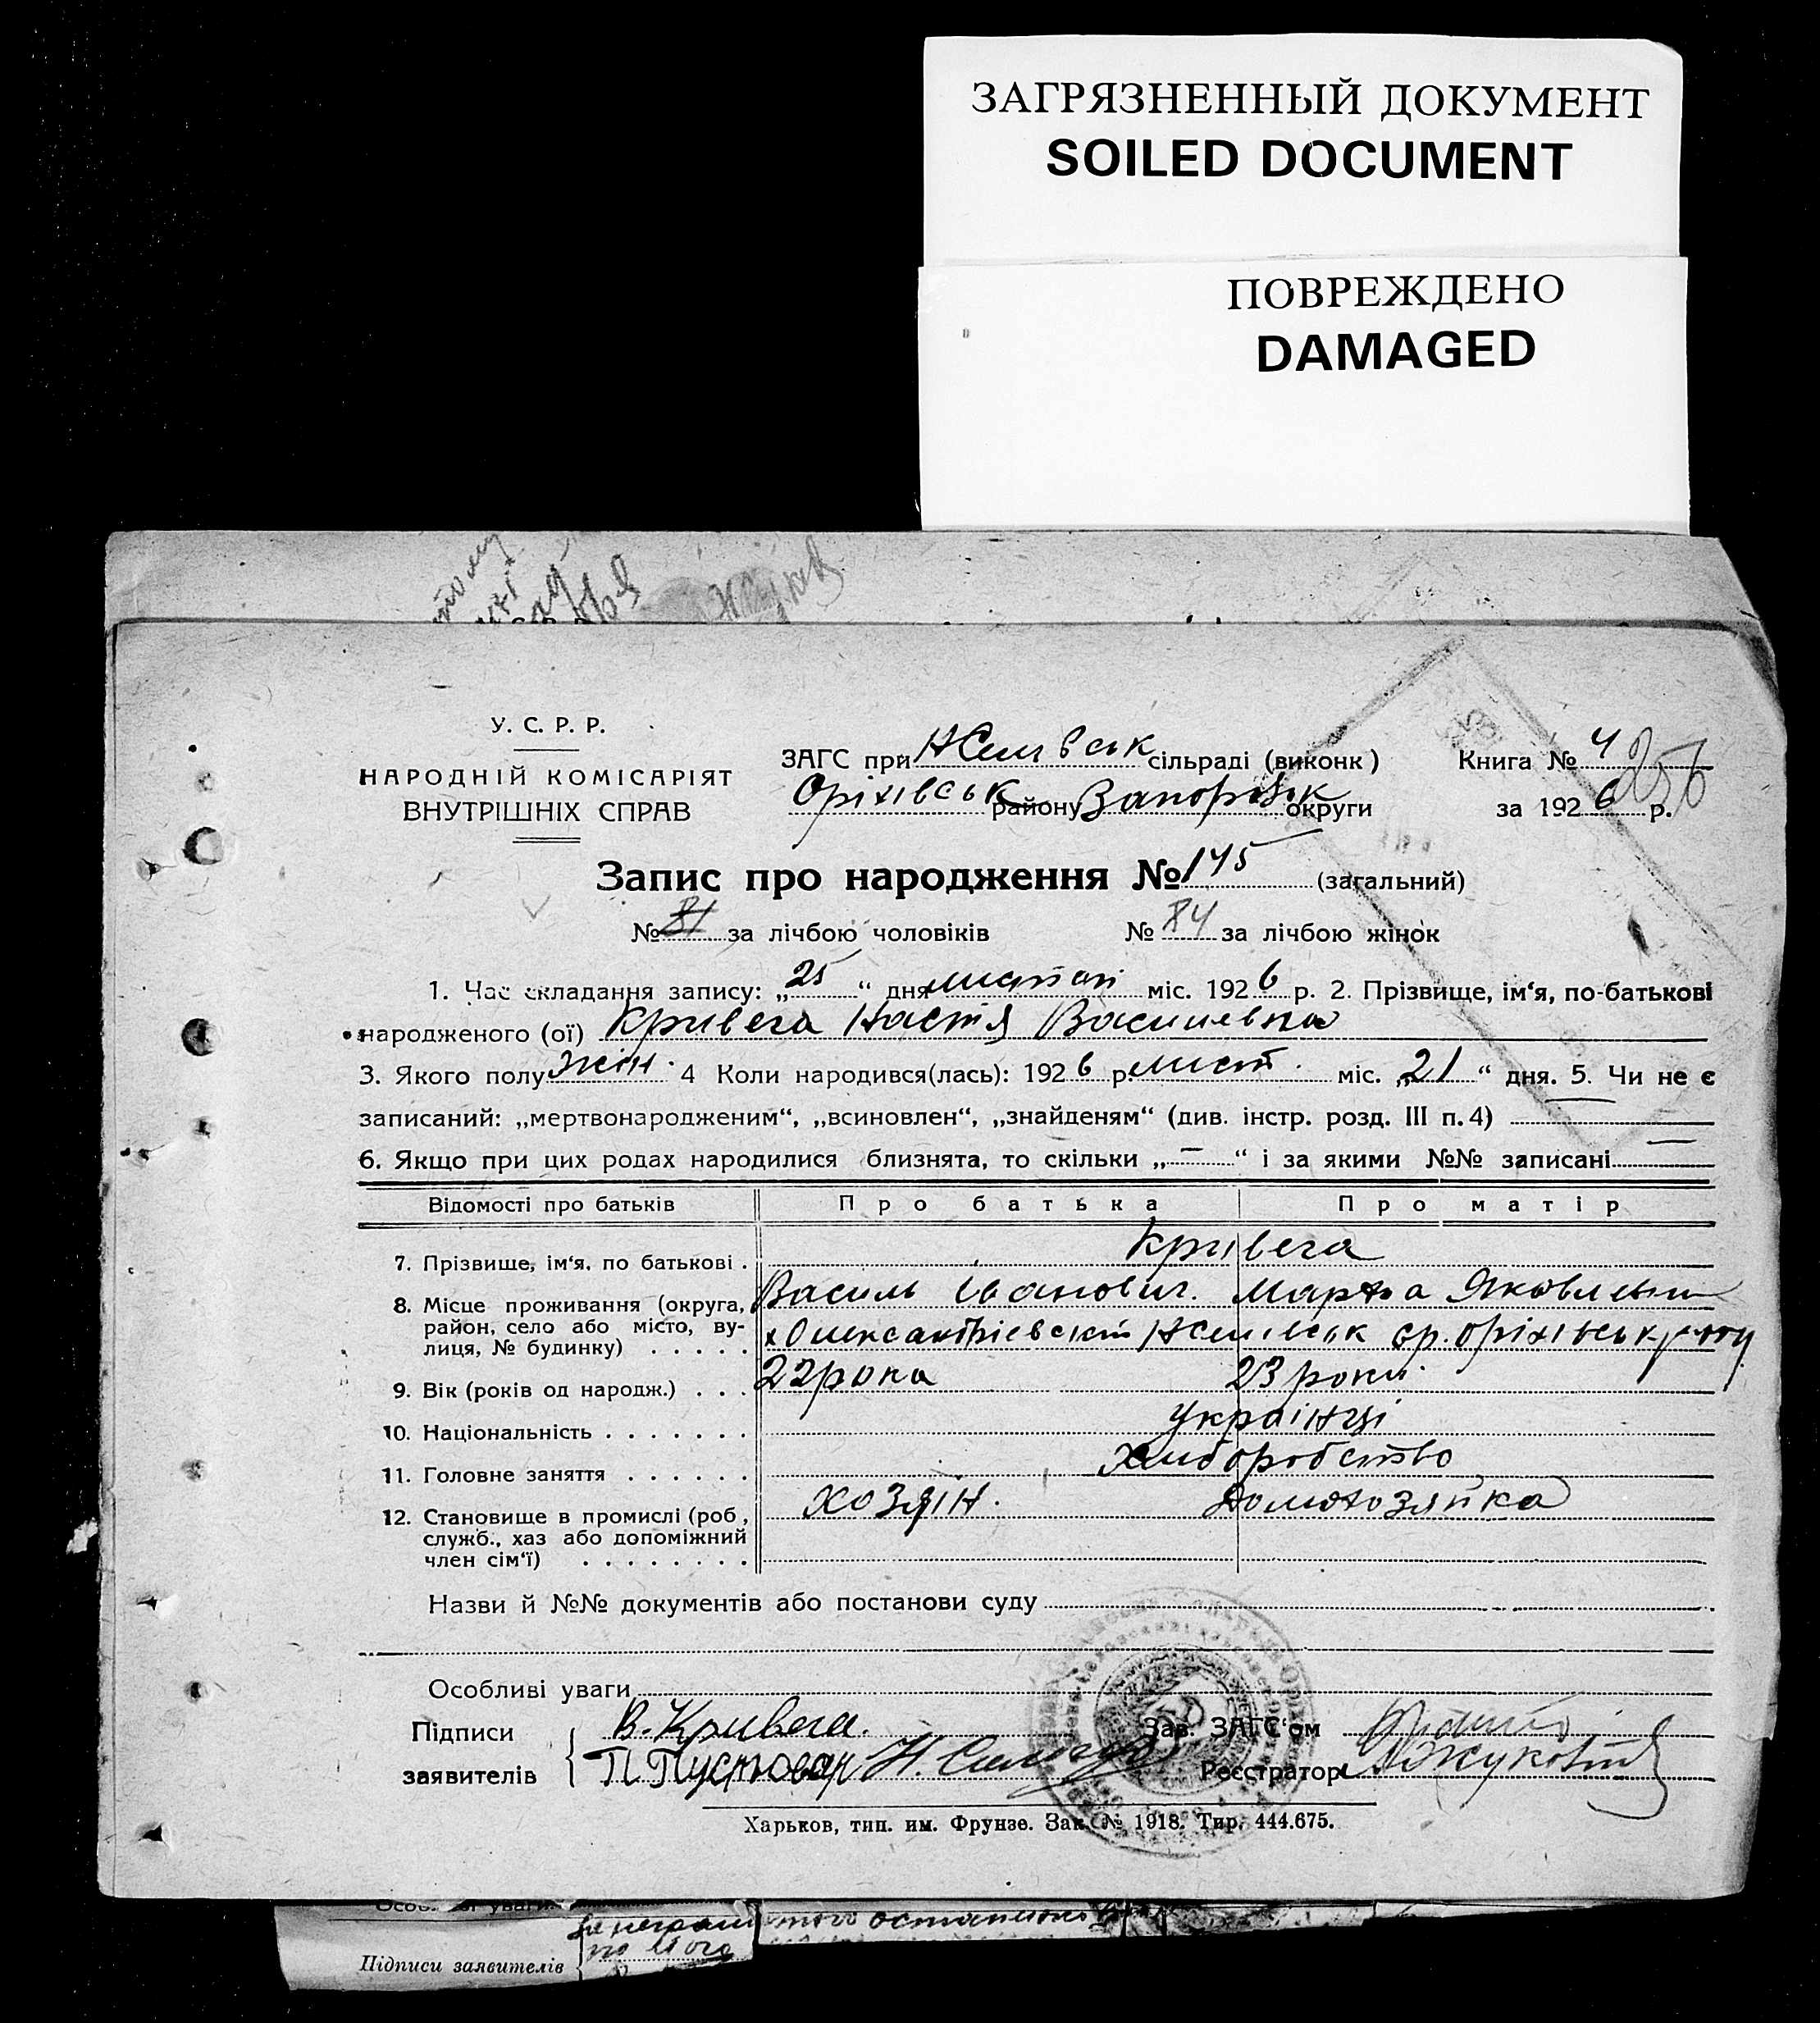 ЗАГРЯЗНЕННЫЙ ДОКУМЕНТ
SOILED DOCUMENT
ПОВРЕЖДЕНО
DAMAGED
У. С. Р. Р.
НАРОДНІЙ КОМІСАРІЯТ
ВНУТРІШНІХ СПРАВ
ЗАГС при сільраді (виконк)
Оріхівськ району Запорізьк округи
Книга № 4
256
за 1926 р.
Запис про народження № 145 (загальний)
№ 81 за лічбою чоловіків № 84 за лічбою жінок
1. Час складання запису: „25“ дня листоп міс. 1926 р. 2. Прізвище, ім‘я, по-батькові
народженого (ої) Кривега Настя Василивна
3. Якого полу жін. 4 Коли народився(лась): 1926 р. лист. міс. „21“ дня. 5. Чи не є
записаний: „мертвонародженим“, „всиновлен“, „знайденям“ (див. інстр. розд. III п. 4) —
6. Якщо при цих родах народилися близнята, то скільки „—“ і за якими №№ записані —
Відомості про батьків Про батька Про матір
7. Прізвище, ім‘я, по батькові . Кривега
Василь Іванович. Марфа Яковлевна
8. Місце проживання (округа, район, село або місто, вулиця, № будинку) . . . . .
9. Вік (років од народж.) . . . 22 рока 23 роки
10. Національність . . . . . . . Українці
11. Головне заняття . . . . . . Хлиборобство
12. Становище в промислі (роб, служб., хаз або допоміжний член сім‘ї) . . . . . . . . хозяін. домохозяйка
Назви й №№ документів або постанови суду
Особливі уваги
Підписи заявителів В. Кривега.
П. Пустовар
Зав. ЗАГС‘ом
Реєстратор
Харьков, тип. им. Фрунзе. Зак. № 1918. Тир. 444.675.
Підписи заявителів